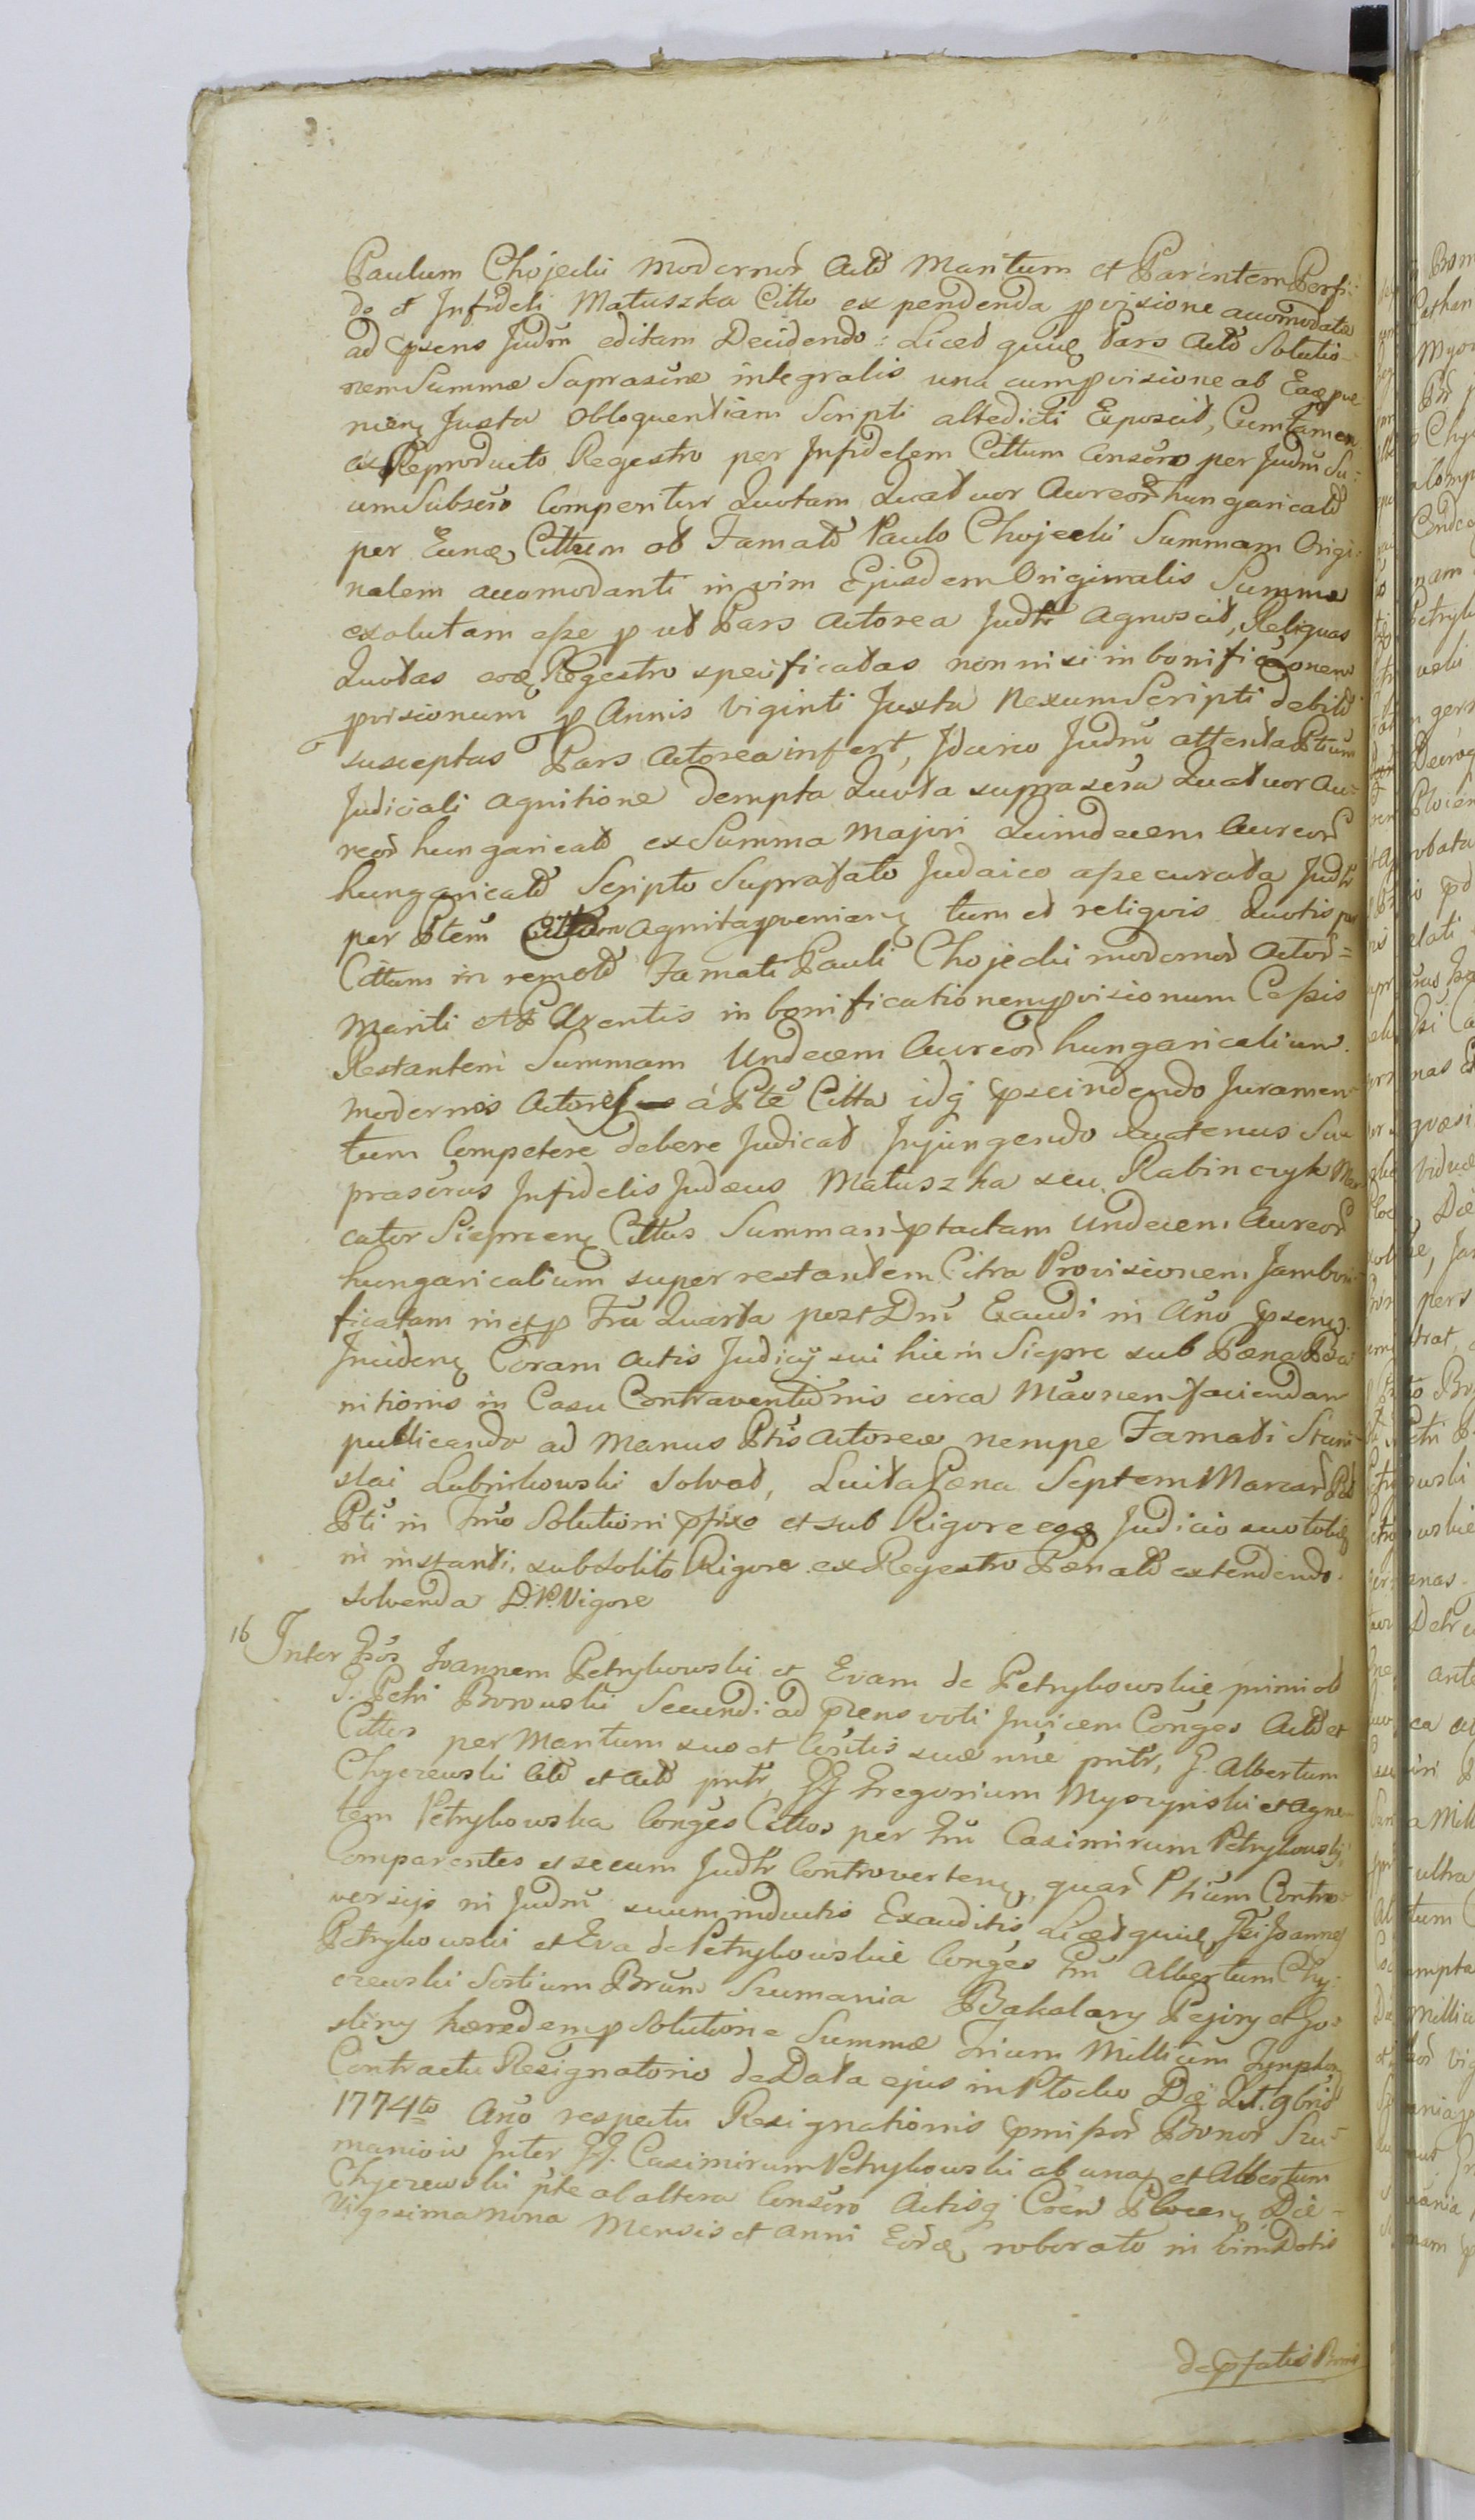 Paulum Chojecki modernor Actor Maritum et Parentem Perfi:
do et Infideli Matuszka Citto ex pendenda provisione accomodatae
ad praesens Judm editam Decidendo: Licet quidem Pars Actor Solutio-
nem Summae Suprascriae integralis una cum provisione ab Ea prove
nien Juxta obloquentiam Scripti altedicti Exposcit, Cum tamen
ex Reproducto Regestro per Infidelem Cittum Conscro per Judm Su-
um Subscro Comperitur Quotam Quatuor Aureor hungarical
per Eundem Cittum ol Famato Paulo Chojecki Summam Origi:
nalem accomodanti in vim Ejusdem Originalis Summae
exolutam esse prout Pars Actorea Judlr Agnoscit, Reliquas
Quotas eodem Regestro specificatas non nisi in bonificaonem
provisionum pro Annis Viginti Juxta Nexum Scripti debiti
susceptas Pars Actorea infert, Idcirco Judm attenta Ptium
Judiciali Agnitione dempta Quota suprascra Quatuor Au-
reor hungarical ex Summa Majori Quindecem Aureor
hungarical Scripto Supradato Judaico assecurata Judlr
per Ptem Cittam Agnita provenien tum et reliquis Quotis per
Cittum in rem olim Famati Pauli Chojecki modernor Actor=
Mariti et Parentis in bonificationem provisionum Cessis
Restantem Summam Undecem Aureor hungaricalium
modernis Actores a Pte Citta idq praescindendo Juramen
tum Competere debere Judicat Injungendo Quatenus Su
prascrus Infidelis Judaeus Matuszka seu Rabinczyk Mer
cator Sieprcen Cittus Summam ptactam Undecem Aureor
hungaricalium super restantem Citra Provisionem Jamboni-
ficatam in et pro Fria Quarta post Dm Exaudi in Ano praesen
Inciden Coram Actis Judicij sui hic in Sieprc sub Paena Ba
nitionis in Casu Contraventionis circa Maonem faciendam
publicanda ad Manus Ptis Actoreae nempe Famati Stani
slai Lubnikowski Solvat, Luita Paena Septem Marcar Pol
Pti in Trmo Solutioni pfixo et sub Rigore eodem Judicio suo toties
in instanti, sub solito Rigore ex Regestro Paenal extendendo
solvenda D.P. Vigore
16 Inter Gsos Joannem Petrykowski et Evam de Petrykowskie primi ol
G. Petri Borowski Secundi ad praens voti Invicem Conges Act et
Cittos per Maritum suo et Consrtis suae nne pntr, G. Albertum
Chyczewski Cit et Act pntr, GG Gregorium Myszynski et Agne-
tem Petrykowska Conges Cittos per Gm Casimirum Petrykowski
Comparentes et secum Judlr Controverten, quar Ptium Contro-
versijs in Judm suum inductis Exauditis, Licet quidem Gsi Joannes
Petrykowski et Eva de Petrykowskie Conges Gm Albertum Chy:
czewski Sortium Brum Szumania Bakalary Pejory et Go-
sliny haeredem pro Solutione Summae Trium Millium Tynphor
Contractu Resignatorio de Data ejus in Plocko Die Lst. 9bris
1774to Ano respectu Resignationis praemissor Bonor Szu-
maniow Inter GG. Casimirum Petrykowski ab una et Albertum
Chyczewski pte ab altera Conscro Actisq Cren Plocen Die
Vigesima nona Mensis et Anni Eordem roborato in Vim Dotis
de pfatis Bonis